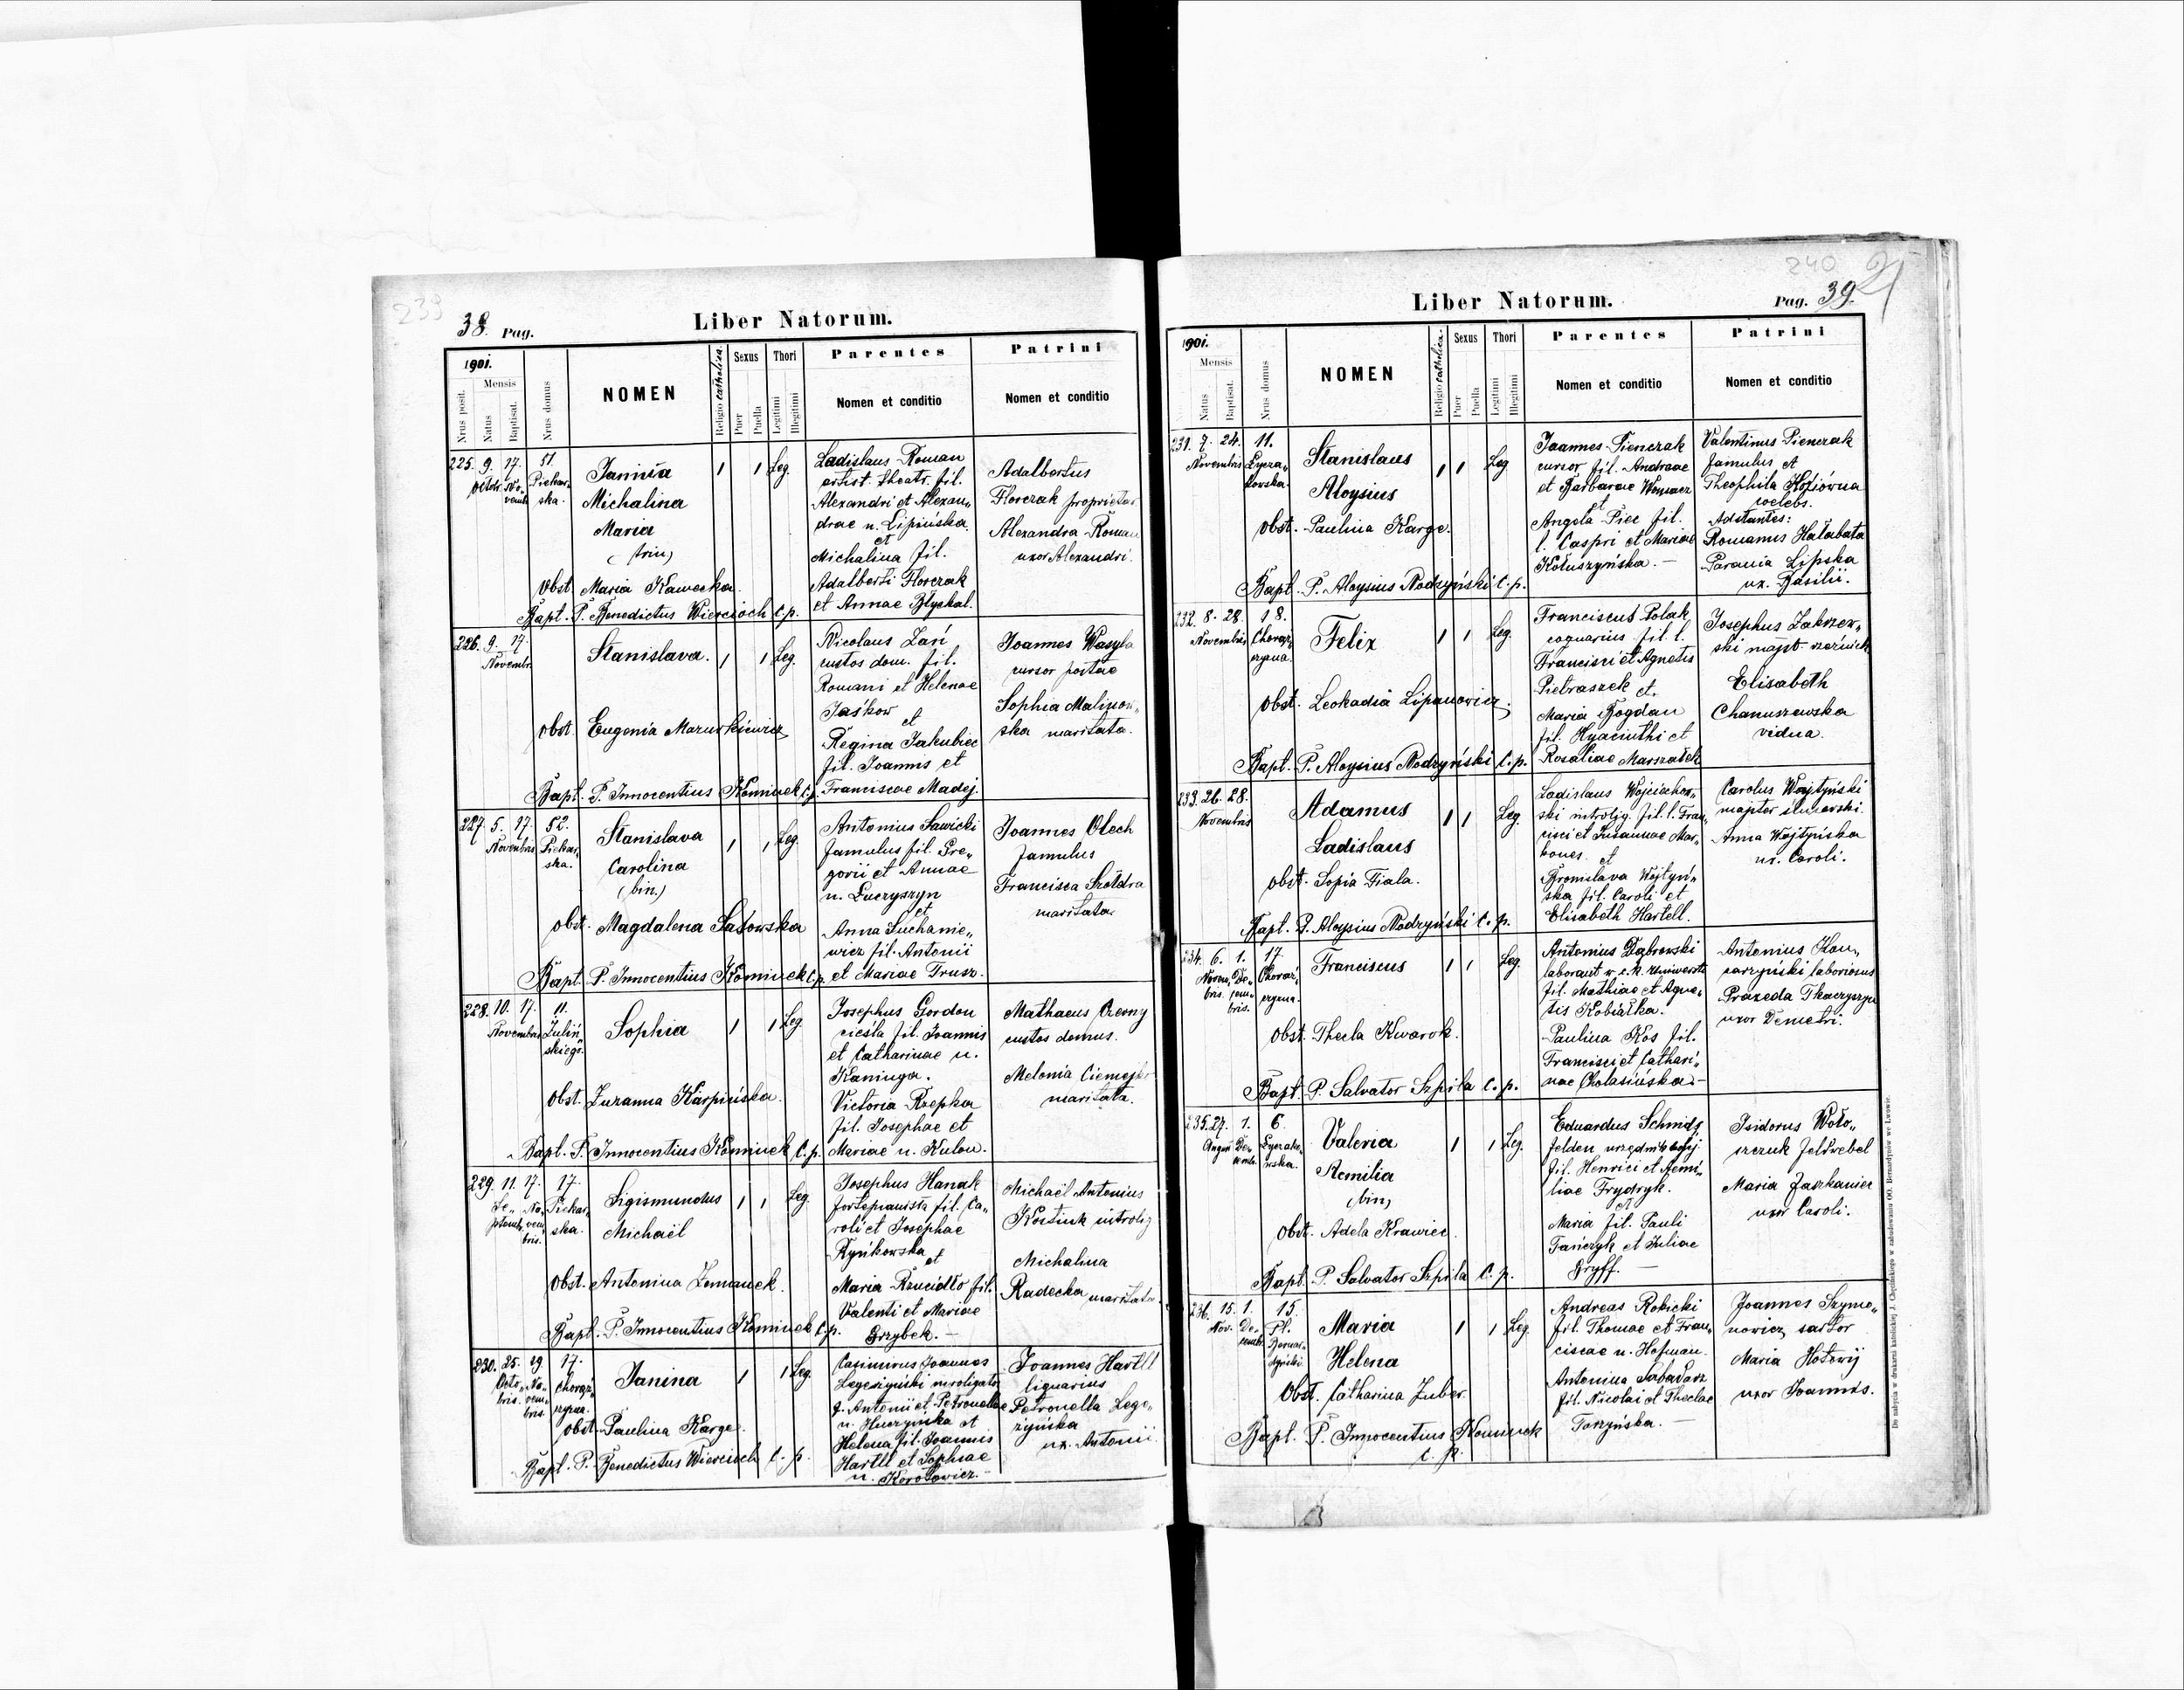 233
38. Pag.
Liber Natorum.
1901.
Nrus posit.
Mensis
Natus
Baptisat.
Nrus domus
NOMEN
Religio catholica.
Sexus
Puer
Puella
Thori
Legitimi
Illegitimi
Parentes
Nomen et conditio
Patrini
Nomen et conditio
225. 9. 17. 51.
Octobr. No-
vemb.
Piekar-
ska.
Janina
Michalina
Maria
(trin)
1 1 Leg.
Obst. Maria Kawecka.
Bapt. P. Benedictus Wiercioch C. p.
Ladislaus Roman
artist. theatr. fil.
Alexandri et Alexan„
drae n. Lipińska.
et
Michalina fil.
Adalberti Florczak
et Annae Błyskal.
Adalbertus
Florczak proprietar.
Alexandra Roman
uxor Alexandri.
226. 9. 17.
Novembr.
Stanislava.
1 1 Leg.
obst. Eugenia Mazurkiewicz
Bapt. P. Innocentius Kominek C. p.
Nicolaus Zań
custos dom. fil.
Romani et Helenae
Jaśkow
et
Regina Jakubiec
fil. Joannis et
Franciscae Madej.
Joannes Wasyla
cursor postae
Sophia Malinow„
ska maritata.
227. 5. 17. 52.
Novembris
Piekar-
ska.
Stanislava
Carolina
(bin.)
1 1 Leg.
obst. Magdalena Sadowska
Bapt. P. Innocentius Kominek C. p.
Antonius Sawicki
famulus fil. Gre„
gorii et Annae
n. Łuczyszyn
et
Anna Suchanie„
wicz fil. Antonii
et Mariae Trusz.
Joannes Olech
famulus
Francisca Szołdra
maritata.
228. 10. 17. 11.
Novembris
Zuliń„
skiego.
Sophia
1 1 Leg.
obst. Zuzanna Karpińska.
Bapt. P. Innocentius Kominek C. p.
Josephus Gordon
cieśla fil. Joannis
et Catharinae n.
Kaninga.
Victoria Rzepka
fil. Josephae et
Mariae n. Kulon.
Mathaeus Czerny
custos domus.
Melania
maritata.
229. 11. 17. 17.
Se„
ptemb.
No„
vem
bris.
Piekar„
ska.
Sigismundus
Michaël
1 1 Leg.
Obst. Antonina Zemanek.
Bapt. P. Innocentius Kominek C. p.
Josephus Hanak
fortepianista fil. Ca„
roli et Josephae
Rynkowska
et
Maria Rzucidło fil.
Valenti et Mariae
Grzybek. —
Michaël Antonius
Kostiuk introlig
Michalina
Radecka maritata.
230. 25. 19. 17.
Octo„
bris.
No„
vem„
bris.
Chorąż„
czyzna.
Janina
1 1 Leg.
obst. Paulina Karge.
Bapt. P. Benedictus Wiercioch C. p.
Casimirus Joannes
Legeżyński introligator
f. Antonii et Petronellae
n. Huczyńska et
Helena fil. Joannis
Hartll et Sophiae
n. Korotowicz. —
Joannes Hartll
lignarius
Petronella Lege„
żyńska
ux. Antonii.
240
21
Liber Natorum.
Pag. 39.
1901.
Mensis
Natus
Baptisat.
Nrus domus
NOMEN
Religio catholica.
Sexus
Puer
Puella
Thori
Legitimi
Illegitimi
Parentes
Nomen et conditio
Patrini
Nomen et conditio
231. 7. 24. 11.
Novembris
Łycza„
kowska.
Stanislaus
Aloysius
1 1 Leg
obst. Paulina Karge.
Bapt. P. Aloysius Nodzyński C. p.
Joannes Pienczak
cursor fil. Andreae
et Barbarae
et
Angela Piec fil.
l. Caspri et Mariae
Kołuszyńska. —
Valentinus Pienczak
famulus et
Theophila Koziówna
coelebs.
Adstantes:
Romanus Hałabata
Parania Lipska
ux. Basilii.
232. 8. 28. 18.
Novembris
Chorąż„
czyzna.
Felix
1 1 Leg.
obst. Leokadia Lipanowicz.
Bapt. P. Aloysius Nodzyński C. p.
Franciscus Polak
coquarius fil. l.
Francisci et Agnetis
Pietraszek et.
Maria Bogdan
fil. Hyacinthi et
Rosaliae Marszałek
Josephus Zakrzew„
ski majst. rzeźnick
Elisabeth
Chanuszewska
vidua.
233. 26. 28.
Novembris
Adamus
Ladislaus
1 1 Leg.
obst. Sopia Fiala.
Bapt. P. Aloysius Nodzyński C. p.
Ladislaus Wojciechow„
ski introlig. fil. l. Fran„
cisci et Susannae Mar„
kones. et
Bronislava Wojtyń„
ska fil. Caroli et
Elisabeth Hartell.
Carolus Wojtyński
majster ślusarski.
Anna Wojtyńska
ux. Caroli.
234. 6. 1. 17.
Novem„
bris.
De„
cem„
bris.
Chorąż„
czyzna.
Franciscus
1 1 Leg.
Obst. Thecla Kwarok.
Bapt. P. Salvator Szpila C. p.
Antonius Dąbrowski
laborant w c. k. Uniwersyt
fil. Mathiae et Agne„
tis Kobiałka.
Paulina Kos fil.
Francisci et Cathari„
nae Cholasińska. —
Antonius Kon„
carzyński laboriosus
Praxeda Tkaczyszyn
uxor Demetri.
235. 27. 1. 6.
August
De„
cemb.
Łyczako„
wska.
Valeria
Aemilia
(bin)
1 1 Leg.
Obst. Adela Krawiec.
Bapt. P. Salvator Szpila C. p.
Eduardus Schmidz
felden urzędnik kolej
fil. Henrici et Aemi„
liae Frydryk.
et
Maria fil. Pauli
Tańczyk et Juliae
Gryff. —
Isidorus Woło„
szczuk Feldwebel
Maria Zaszkaniec
uxor Caroli.
236. 15. 1. 15.
Nov.
De„
cemb.
Pl.
Bernar„
dyński
Maria
Helena
1 1 Leg.
Obst. Catharina Zuber.
Bapt. P. Innocentius Kominek
C. p.
Andreas Rokicki
fil. Thomae et Fran„
ciscae n. Hofman.
Antonina Sabadarz
fil. Nicolai et Theclae
Torzyńska. —
Joannes Szyme„
nowicz sartor
Maria Hotowij
uxor Joannis.
Do nabycia w drukarni katolickiej J. Chęcińskiego w zabudowaniu OO. Bernardynów we Lwowie.